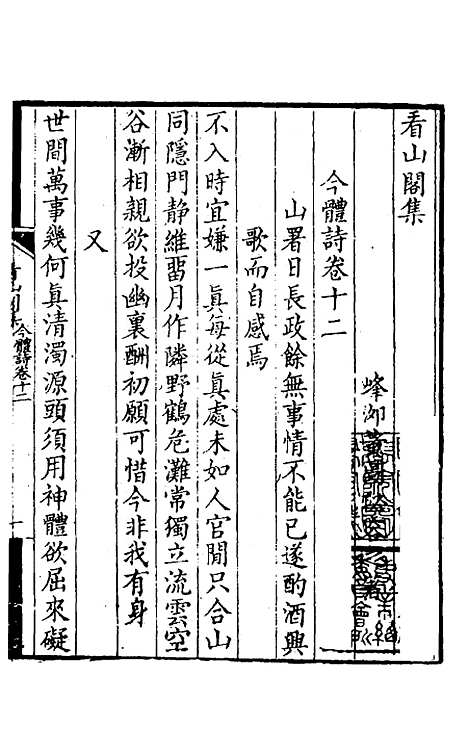 看山閣集
今體詩卷十二
峰泖
山署日長政餘無事情不能已遂酌酒興
歌而自感焉
不入時宜嫌一眞每從眞處未如人官閒只合山
同隱門静維畱月作隣野鶴危灘常獨立流雲空
谷漸相親欲投幽裏酬初願可惜今非我有身
又
世間萬事幾何眞清濁源頭須用神體欲屈來礙
看山閣集
今體詩卷十二
一